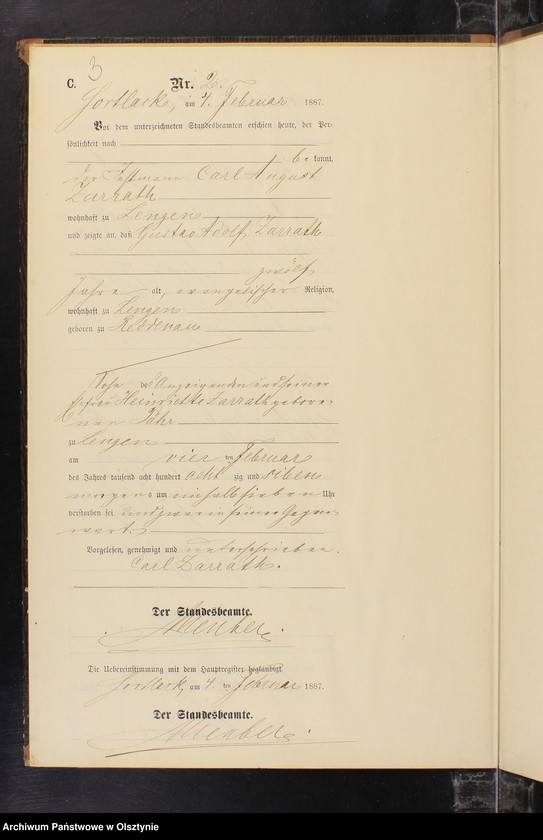 3
C. Nr. 2.
Hortlack, am 4. Februar 1887.
Vor dem unterzeichneten Standesbeamten erschien heute, der Per-
sönlichkeit nach
be kannt,
der Carl August
Zarrath
wohnhaft zu Lengen
und zeigte an, daß Gustav Adolf Zarrath
zwölf
Jahre alt, evangelischer Religion,
wohnhaft zu Lengen
geboren zu Reddenau
Sohn des Anzeigenden und seiner
Ehefrau Heinriette Zarrath gebore-
nen
zu Lengen
am vier ten Februar
des Jahres tausend acht hundert acht zig und sieben
morgens um einhalb sieben Uhr
verstorben sei und zwar in seiner Gegen-
wart.
Vorgelesen, genehmigt und unterschrieben.
Carl Zarrath.
Der Standesbeamte.
Die Uebereinstimmung mit dem Hauptregister beglaubigt.
Hortlack, am 4. ten Februar 1887.
Der Standesbeamte.
Archiwum Państwowe w Olsztynie